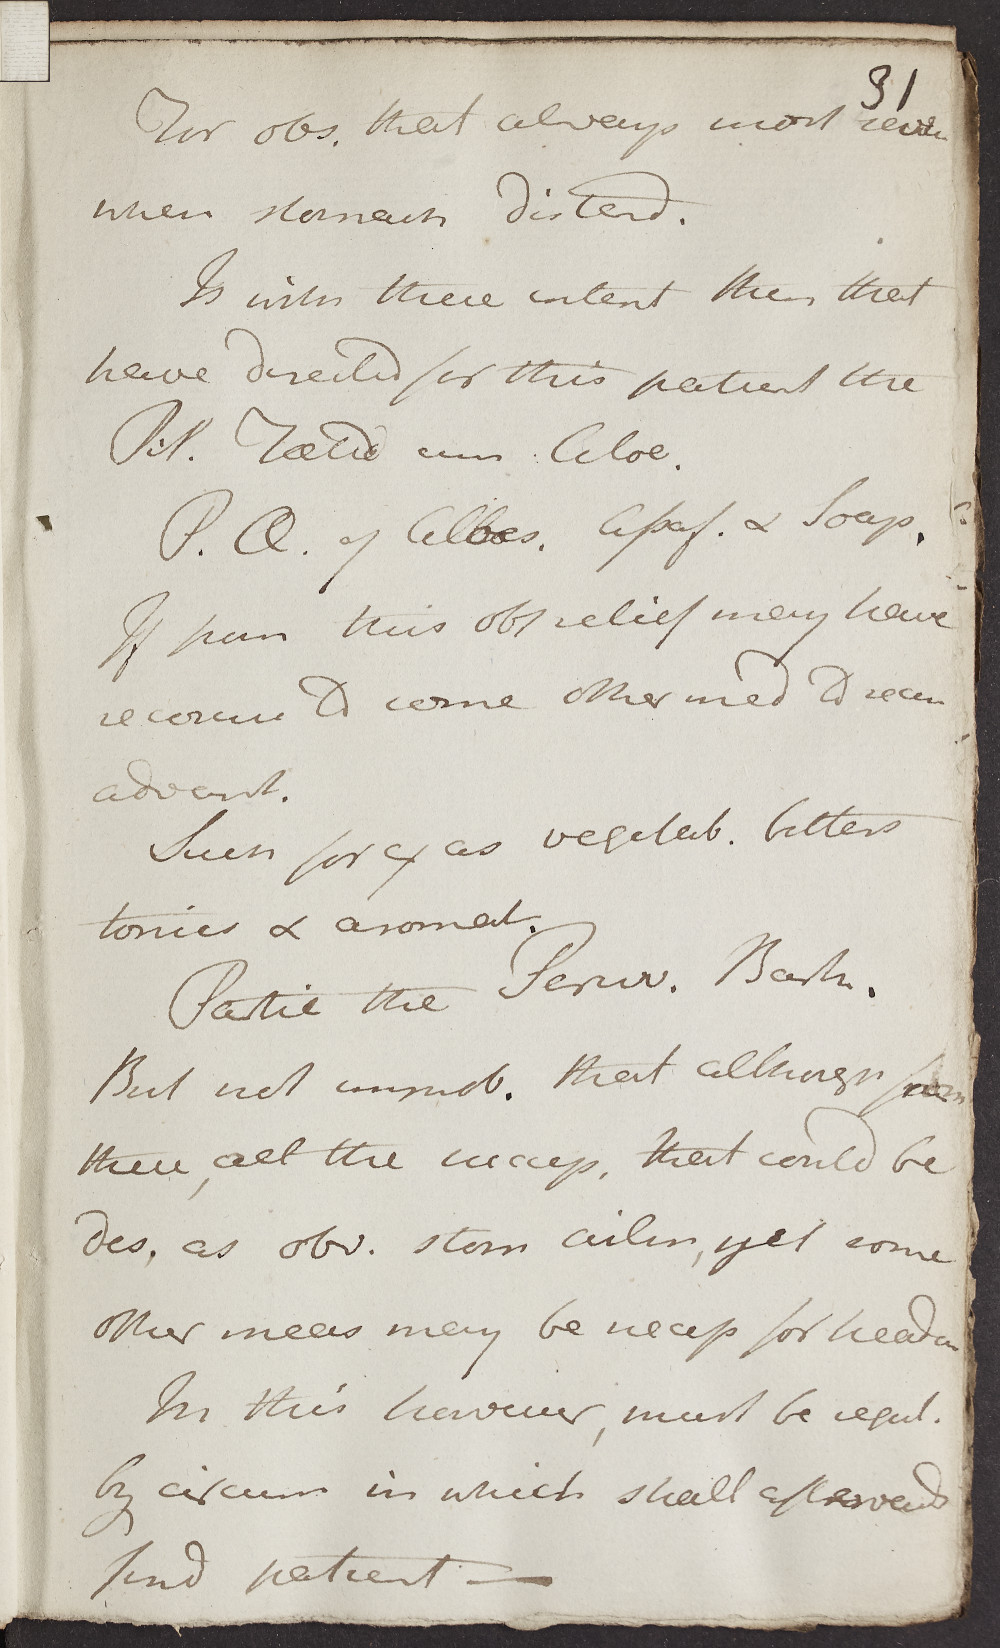 31
For obs. that always most sever
when stomach distend.
Is with these intent then that
have directed for this patient the
Pil. Fœtid cum Aloe.
P. Æ. of Alloes. Assaf. & Soap.
If from this obt relief may have
recourse to some other med to secur
advant.
Such for ex as vegetab. bitters
tonics & aromat.
Partic the Peruv. Bark.
But not improb. that although from
these, all the necess. that could be
des, as obv. stom ailm, yet some
other meas may be necess for headac
In this however, must be regul.
by circum in which shall afterwards
find patient —